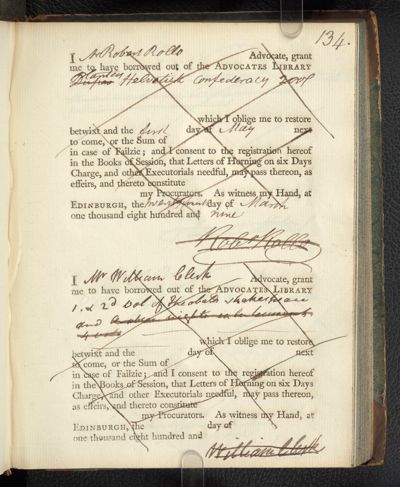 134.
I Mr Robert Rollo Advocate, grant
me to have borrowed out of the ADVOCATES LIBRARY
Planta's
Helvetick Confederacy 2 vols
which I oblige me to restore
betwixt and the first day of May next
to come, or the Sum of
in case of Failzie; and I consent to the registration hereof
in the Books of Session, that Letters of Horning on six Days
Charge, and other Executorials needful, may pass thereon, as
effeirs, and thereto constitute
my Procurators. As witness my Hand, at
EDINBURGH, the day of March
one thousand eight hundred and nine
Robert Rollo
I Mr William Clerk Advocate, grant
me to have borrowed out of the ADVOCATES LIBRARY
1. & 2d Vol of Theobald's Shakespeare
and
which I oblige me to restore
betwixt and the day of next
to come, or the Sum of
in case of Failzie; and I consent to the registration hereof
in the Books of Session, that Letters of Horning on six Days
Charge, and other Executorials needful, may pass thereon,
as effeirs, and thereto constitute
my Procurators. As witness my Hand, at
EDINBURGH, the day of
one thousand eight hundred and
William Clerk